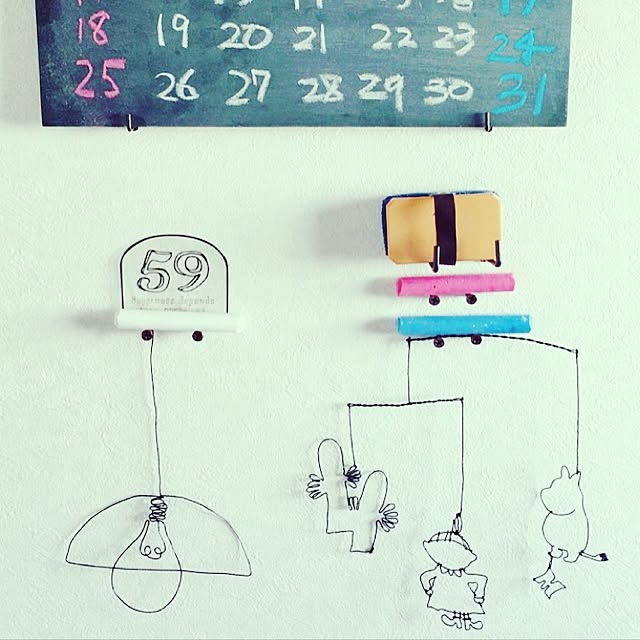 18 19 20 21 22 23 24
25 26 27 28 29 30 31
59
Happiness depends